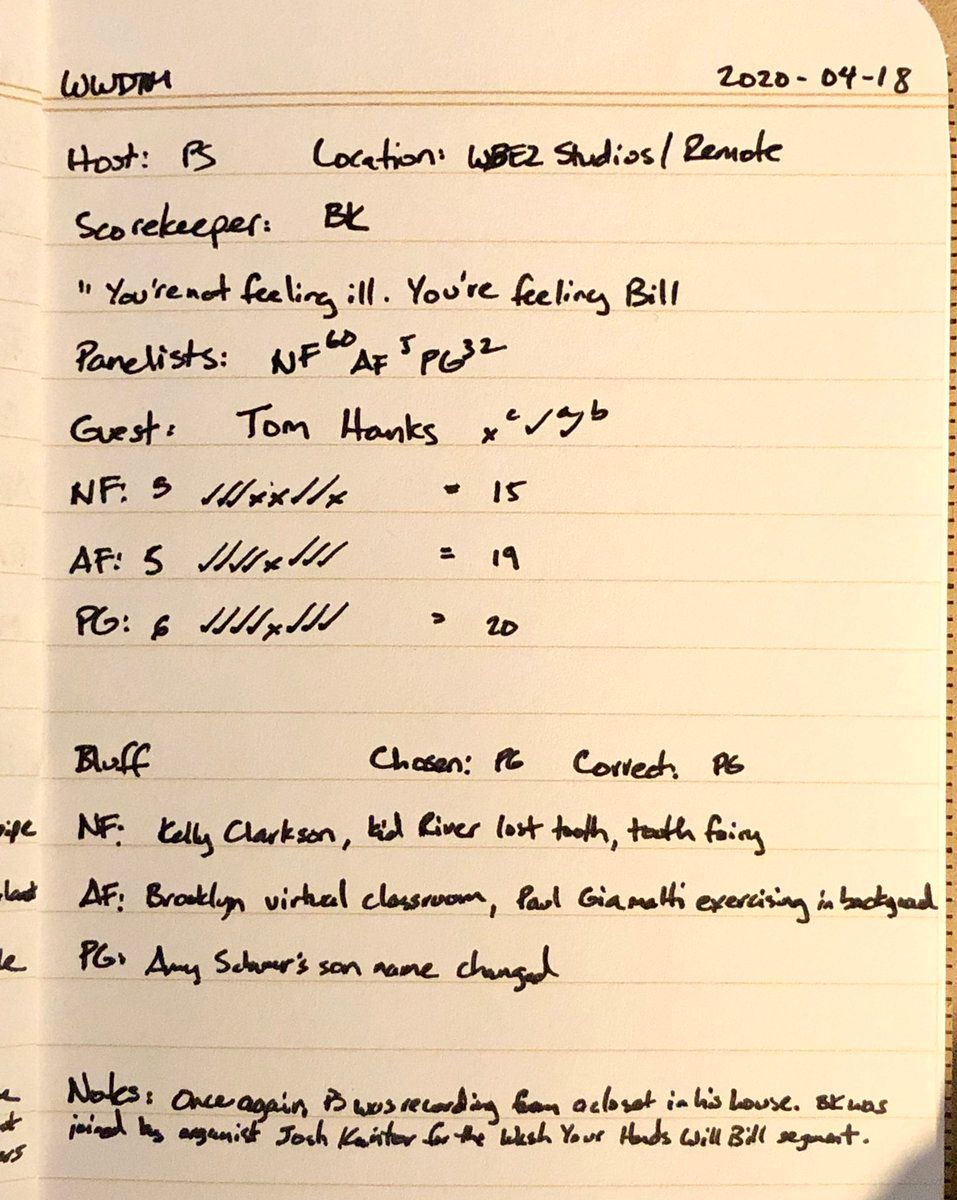 WWDTM 2020-04-18
Host: PS Location: WBEZ Studios/Remote
Scorekeeper: BK
" You're not feeling ill. You're feeling Bill
Panelists: NF 60 AF 5 PG 32
Guest: Tom Hanks x c ✓ a, b
NF: 5 ✓✓✓xx✓✓x = 15
AF: 5 ✓✓✓✓x✓✓✓ = 19
PG: 6 ✓✓✓✓x✓✓✓ = 20
Bluff Chosen: PG Correct: PG
NF: Kelly Clarkson, kid River lost tooth, tooth fairy
AF: Brooklyn virtual classroom, Paul Giamatti exercising in background
PG: Amy Schumer's son name changed
Notes: Once again, PS was recording from a closet in his house. BK was
joined by organist Josh Kantor for the Wash Your Hands Will Bill segment.